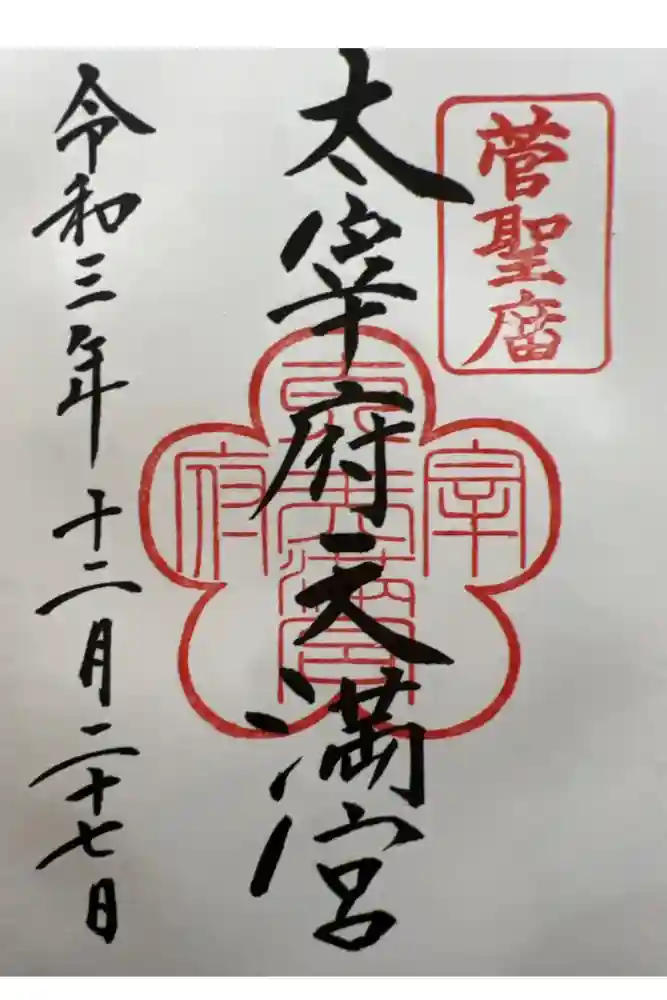 菅聖廟
太宰府天満宮
令和三年十二月二十七日